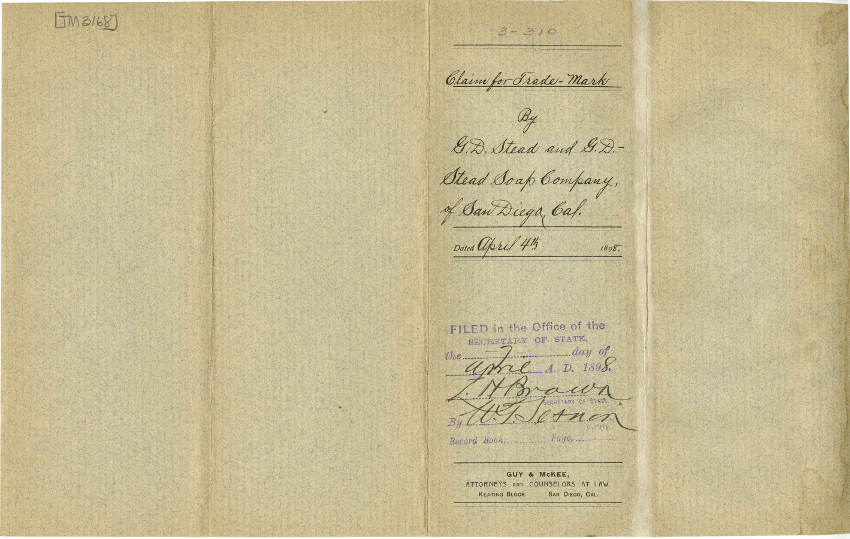 [TM3168]
3-310
Claim for Trade-Mark
By
G.D. Stead and G.D.-
Stead Soap Company,
of San Diego, Cal.
Dated April 4th 1898.
FILED in the Office of the
SECRETARY OF STATE,
the 7 day of
April A. D. 1898.
L. H. Brown
SECRETARY OF STATE.
By W. T.
Record Book, Page,
GUY & McKEE,
ATTORNEYS AND COUNSELORS AT LAW
KEATING BLOCK. SAN DIEGO, CAL.